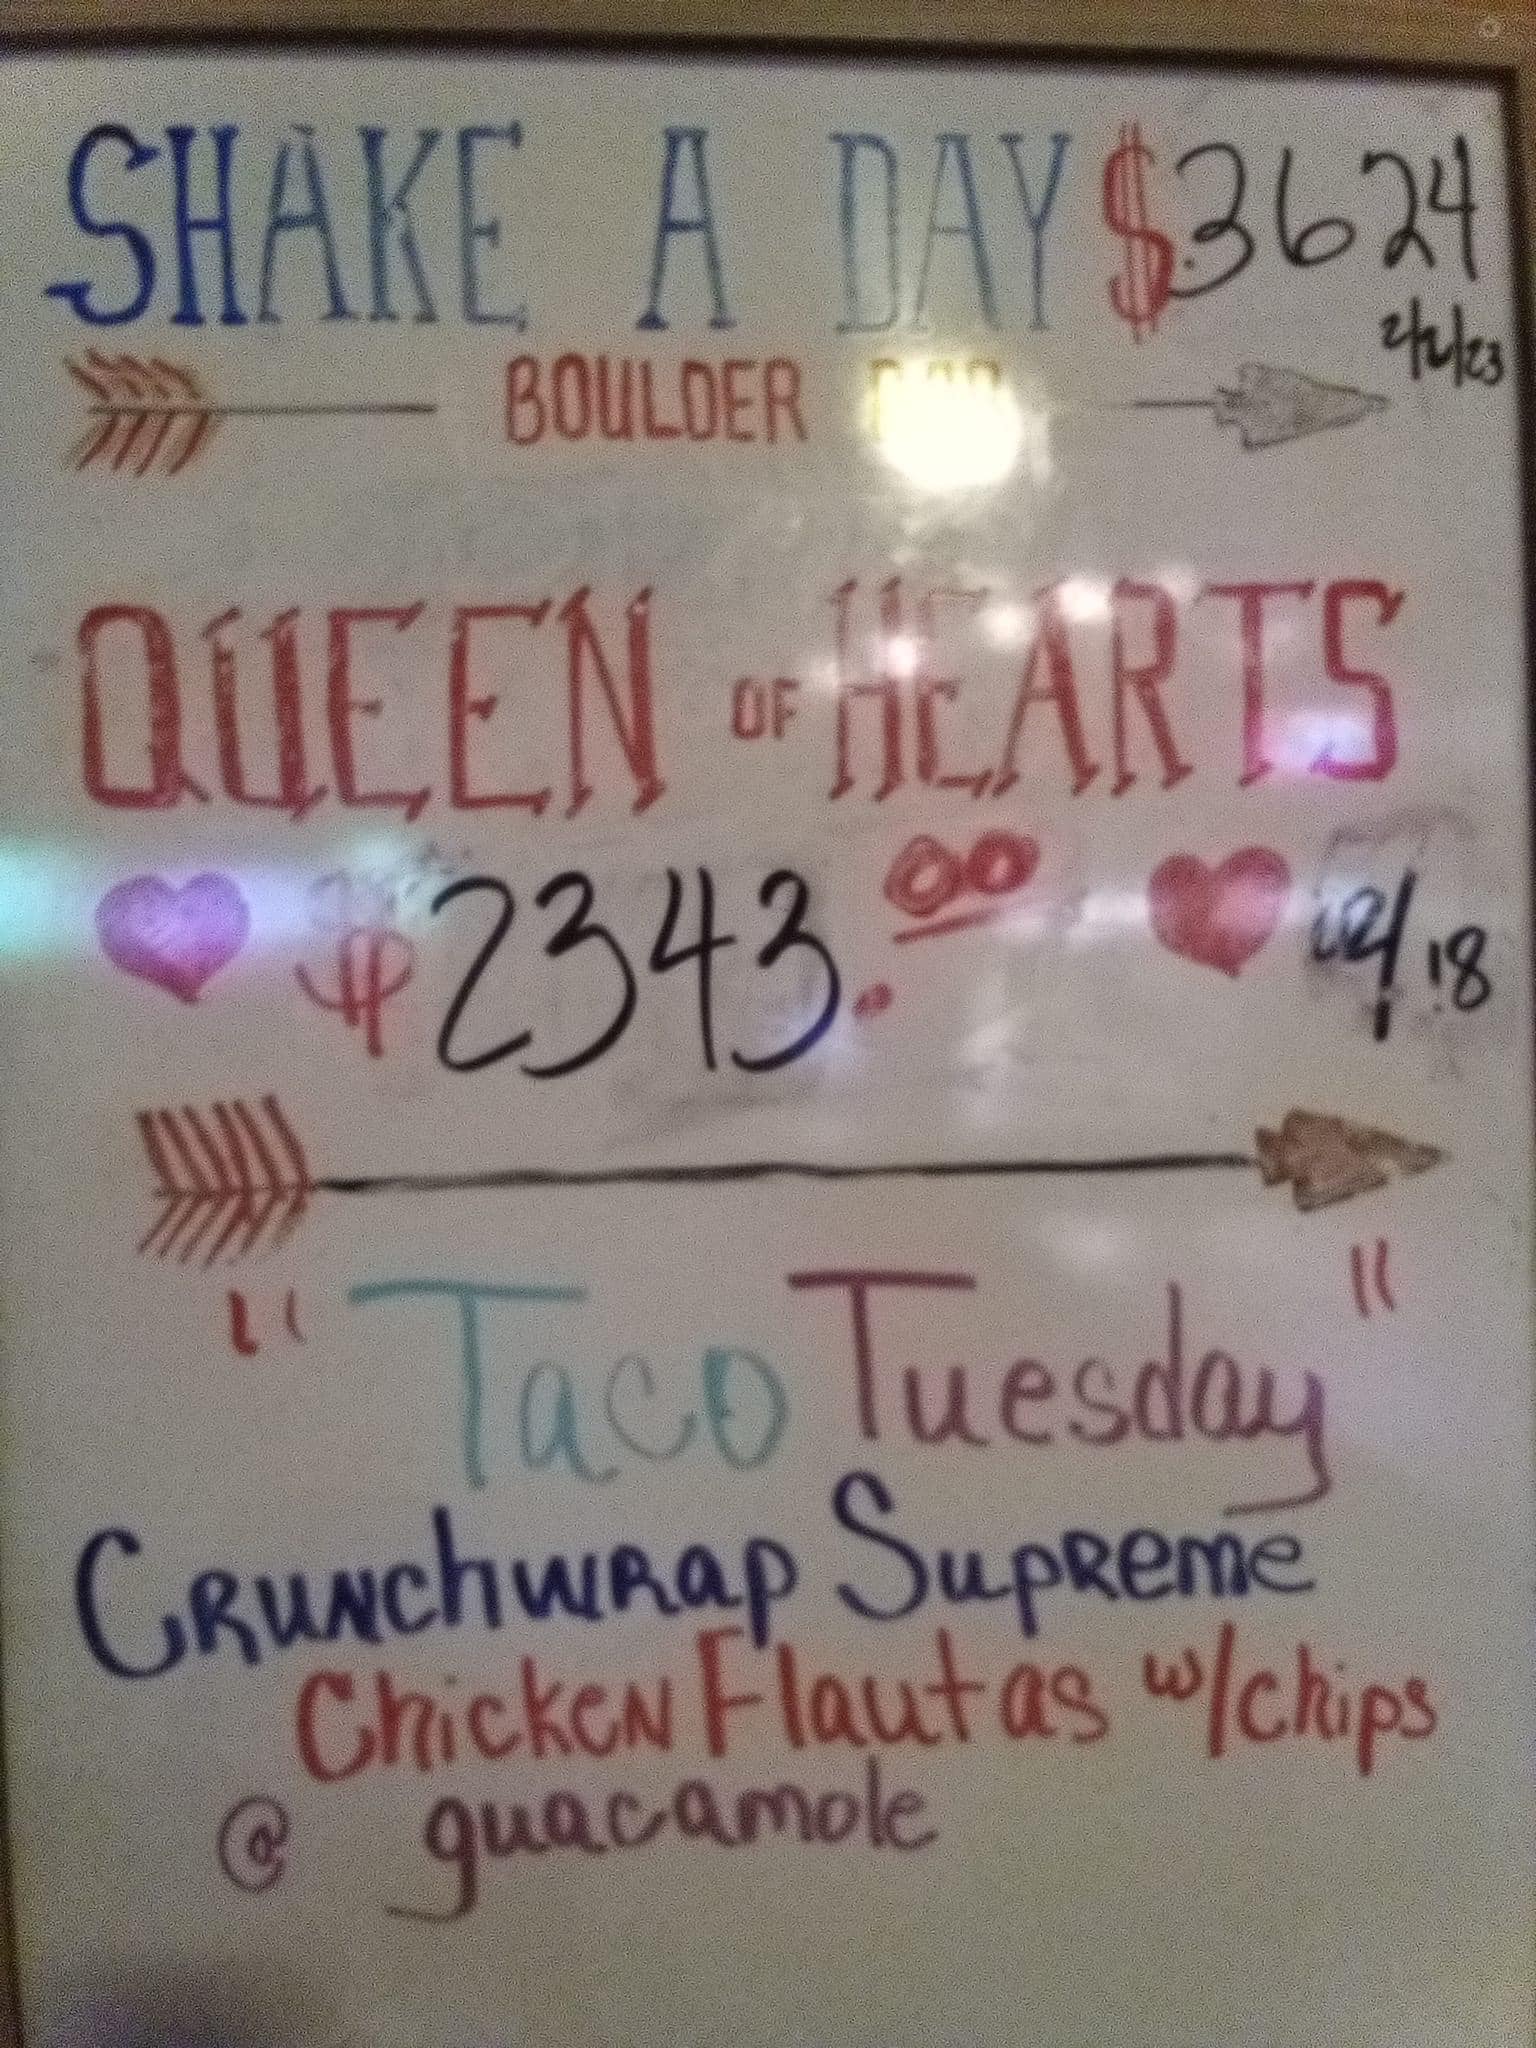 SHAKE A DAY $3624
2/2/23
BOULDER BAR
QUEEN OF HEARTS
$2343.00
"Taco Tuesday"
Crunchwrap Supreme
Chicken Flautas w/chips
@ guacamole